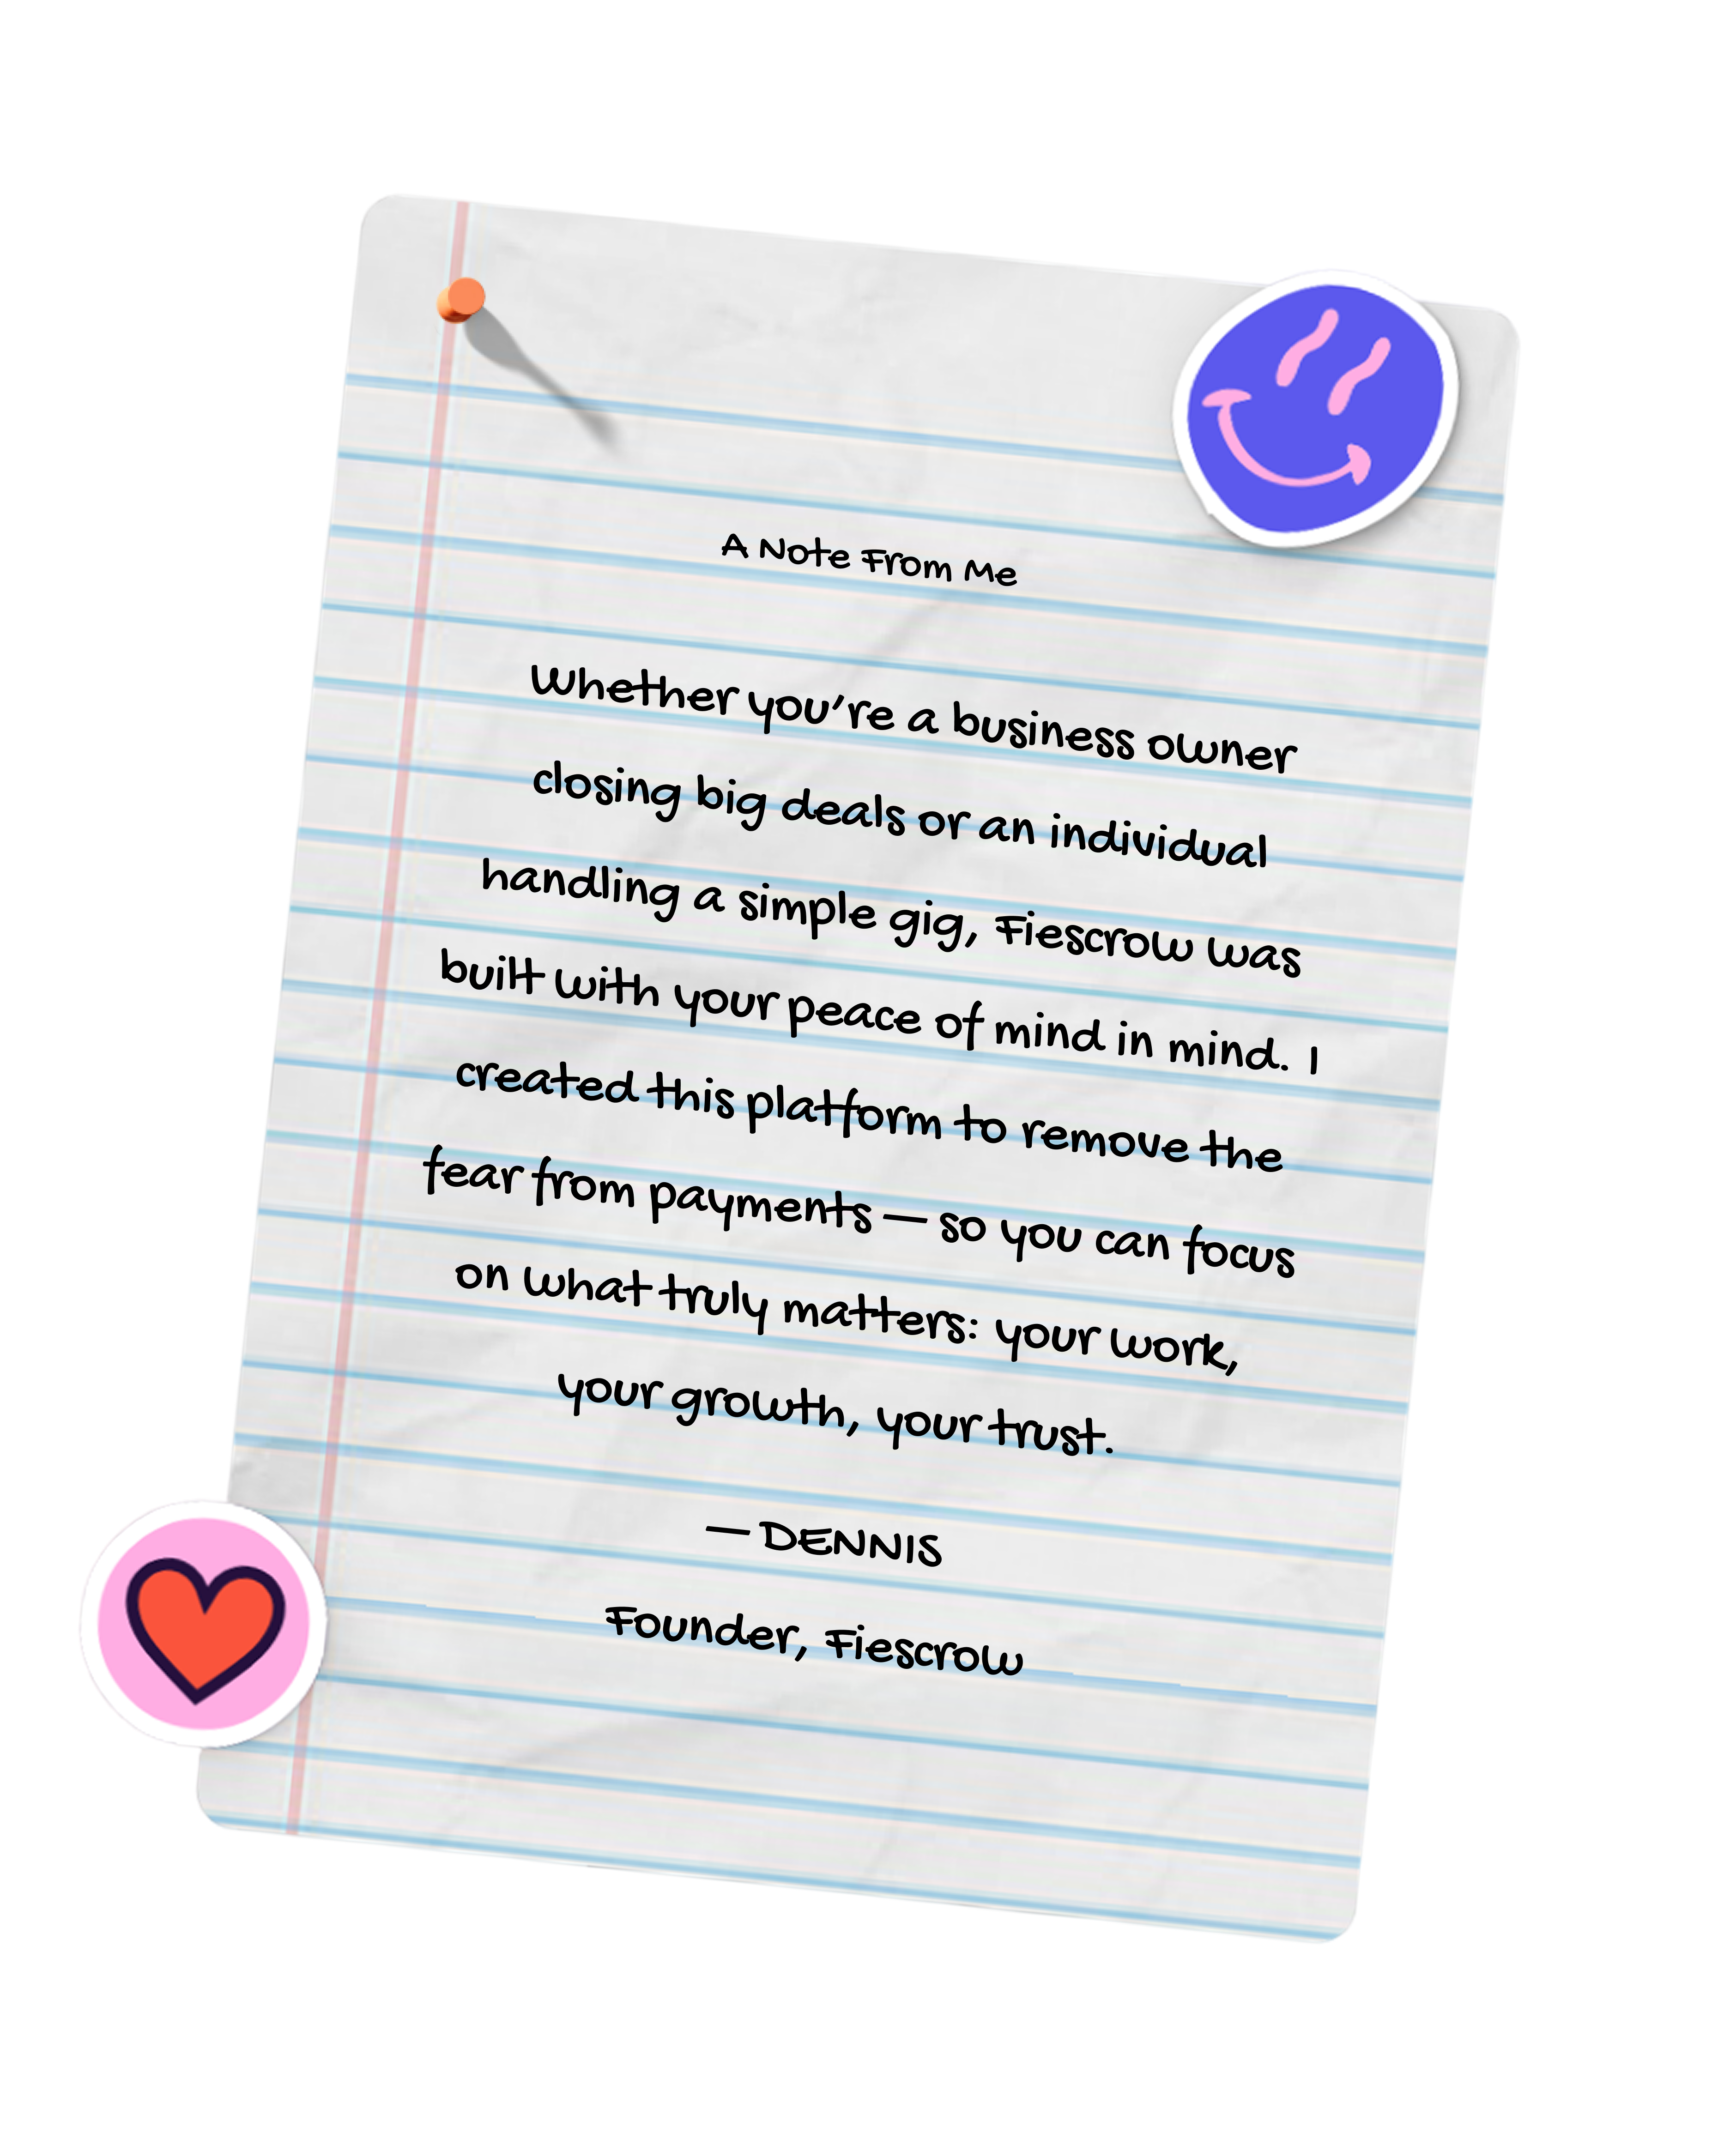 A Note From Me
Whether you’re a business owner
closing big deals or an individual
handling a simple gig, Fiescrow was
built with your peace of mind in mind. I
created this platform to remove the
fear from payments — so you can focus
on what truly matters: your work,
your growth, your trust.
— DENNIS
Founder, Fiescrow